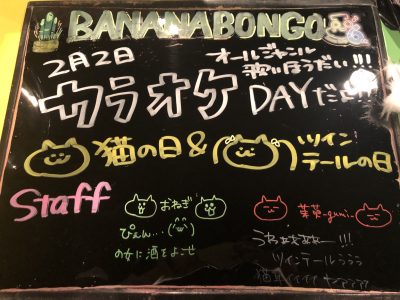 BANANABONGO
2月2日
オールジャンル
歌いほうだい!!!
カラオケ DAYだよ!!
猫の日 & ツイン
テールの日
Staff
おねぎ
ぴえん...
の女に酒をよこせ
茉英-guni-
うわぁぁぁぁー!!!
ツインテールううう